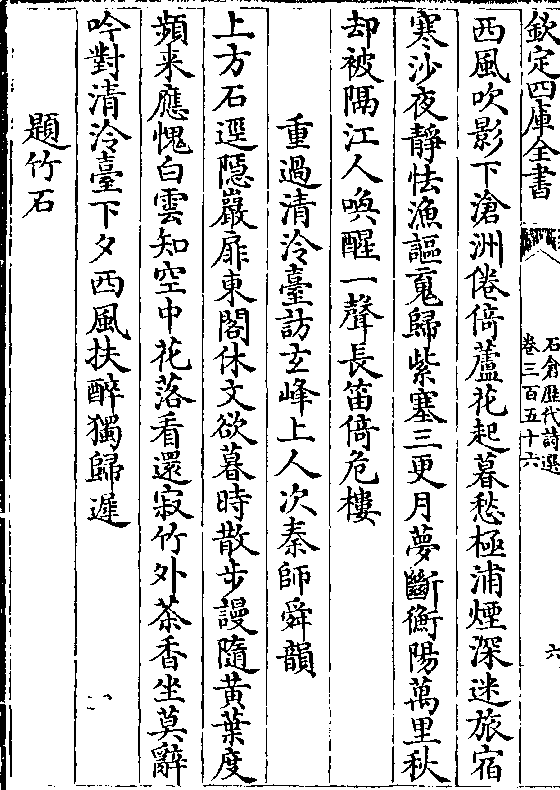 欽定四庫全書
石倉歴代詩選
卷三百五十六
六
西風吹影下滄洲倦倚蘆花起暮愁極浦煙深迷旅宿
寒沙夜靜怯漁謳䰟歸紫塞三更月夢斷衡陽萬里秋
却被隔江人喚醒一聲長笛倚危樓
重過清泠臺訪玄峰上人次秦師舜韻
上方石逕隱巖扉東閣休文欲暮時散步謾隨黄葉度
頻来應愧白雲知空中花落看還寂竹外茶香坐莫辭
吟對清泠臺下夕西風扶醉獨歸遲
題竹石